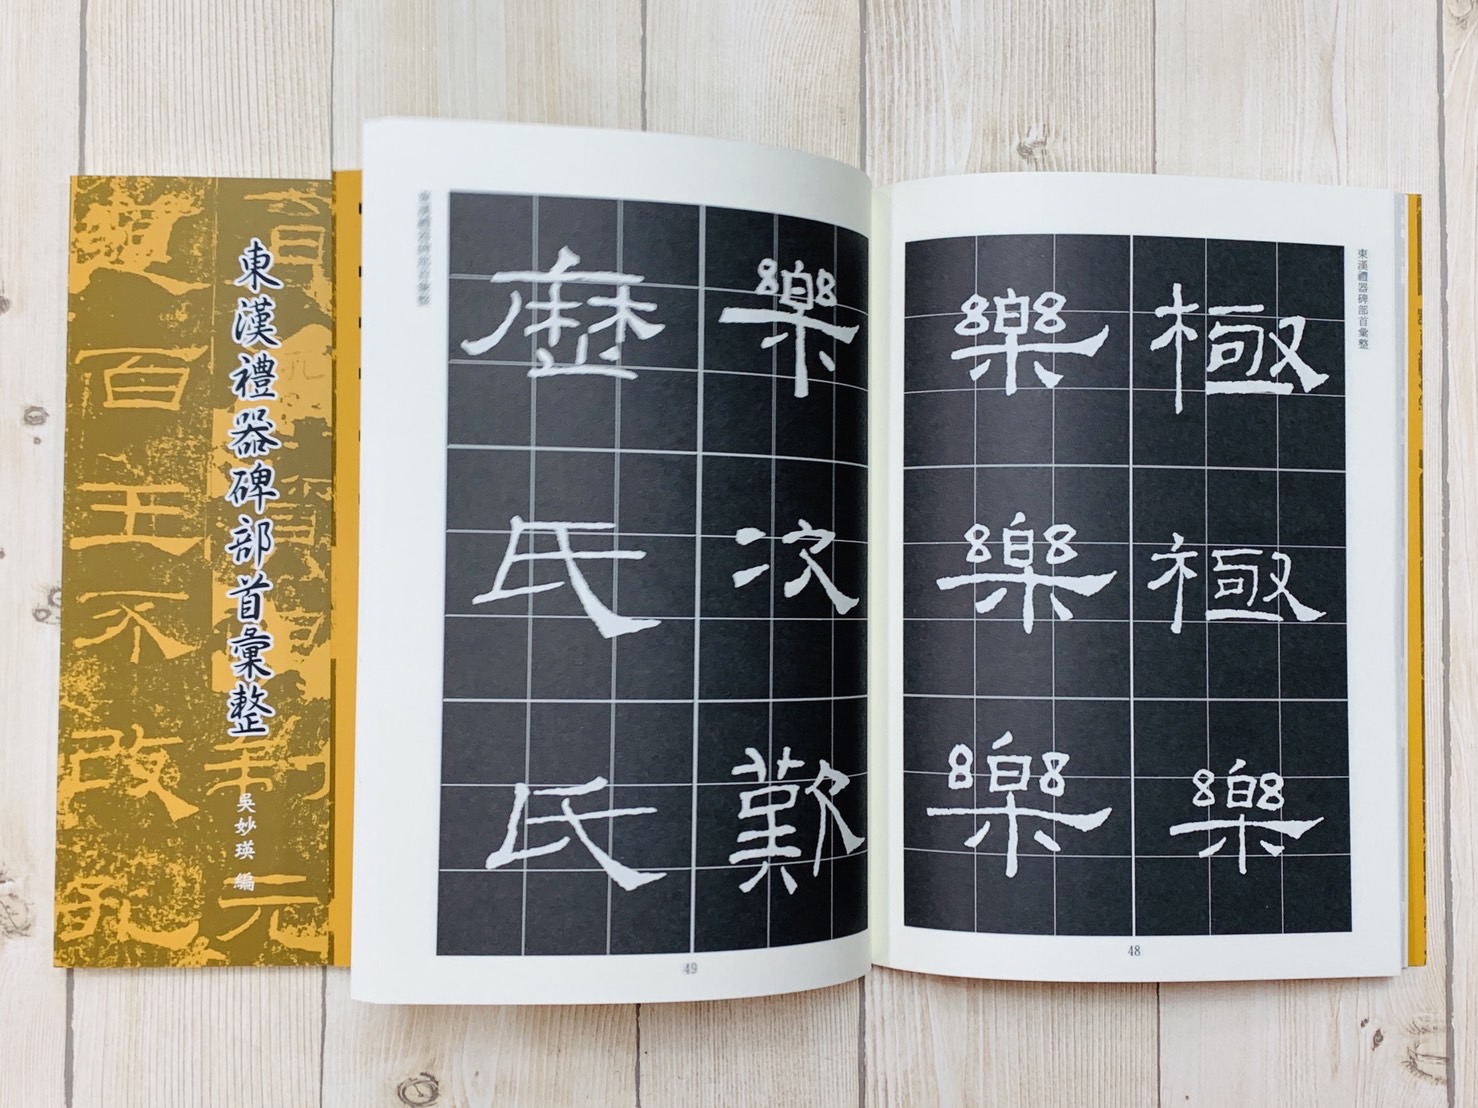 東漢禮器碑部首彙整
吳妙瑛 編
百王不改孔
制元
東漢禮器碑部首彙整
極極樂
樂樂樂
48
東漢禮器碑部首彙整
樂次歎
歷氏氏
49